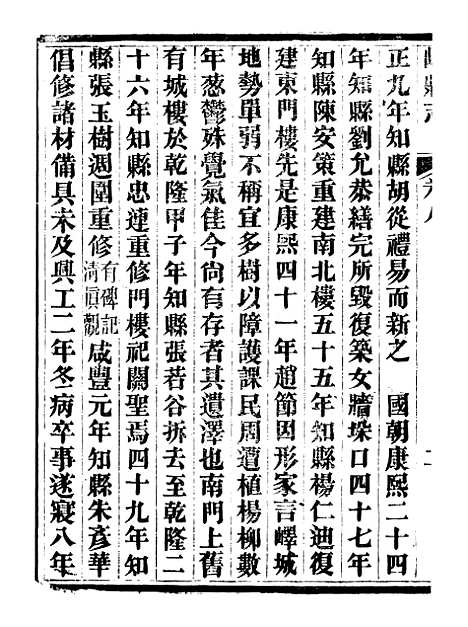 正九年知縣胡從禮易而新之　國朝康熙二十四
年知縣劉允恭繕完所毀復築女牆垛口四十七年
知縣陳安策重建南北樓五十五年知縣楊仁迪復
建東門樓先是康熙四十一年趙節因形家言嶧城
地勢單弱不稱宜多樹以障護課民周遭植楊柳數
年蔥鬱殊覺氣佳今尚有存者其遺澤也南門上舊
有城樓於乾隆甲子年知縣張若谷拆去至乾隆二
十六年知縣忠連重修門樓祀關聖焉四十九年知
縣張玉樹週圍重修有碑記清慎觀咸豐元年知縣朱彥華
倡修諸材備具未及興工二年冬病卒事遂寢八年